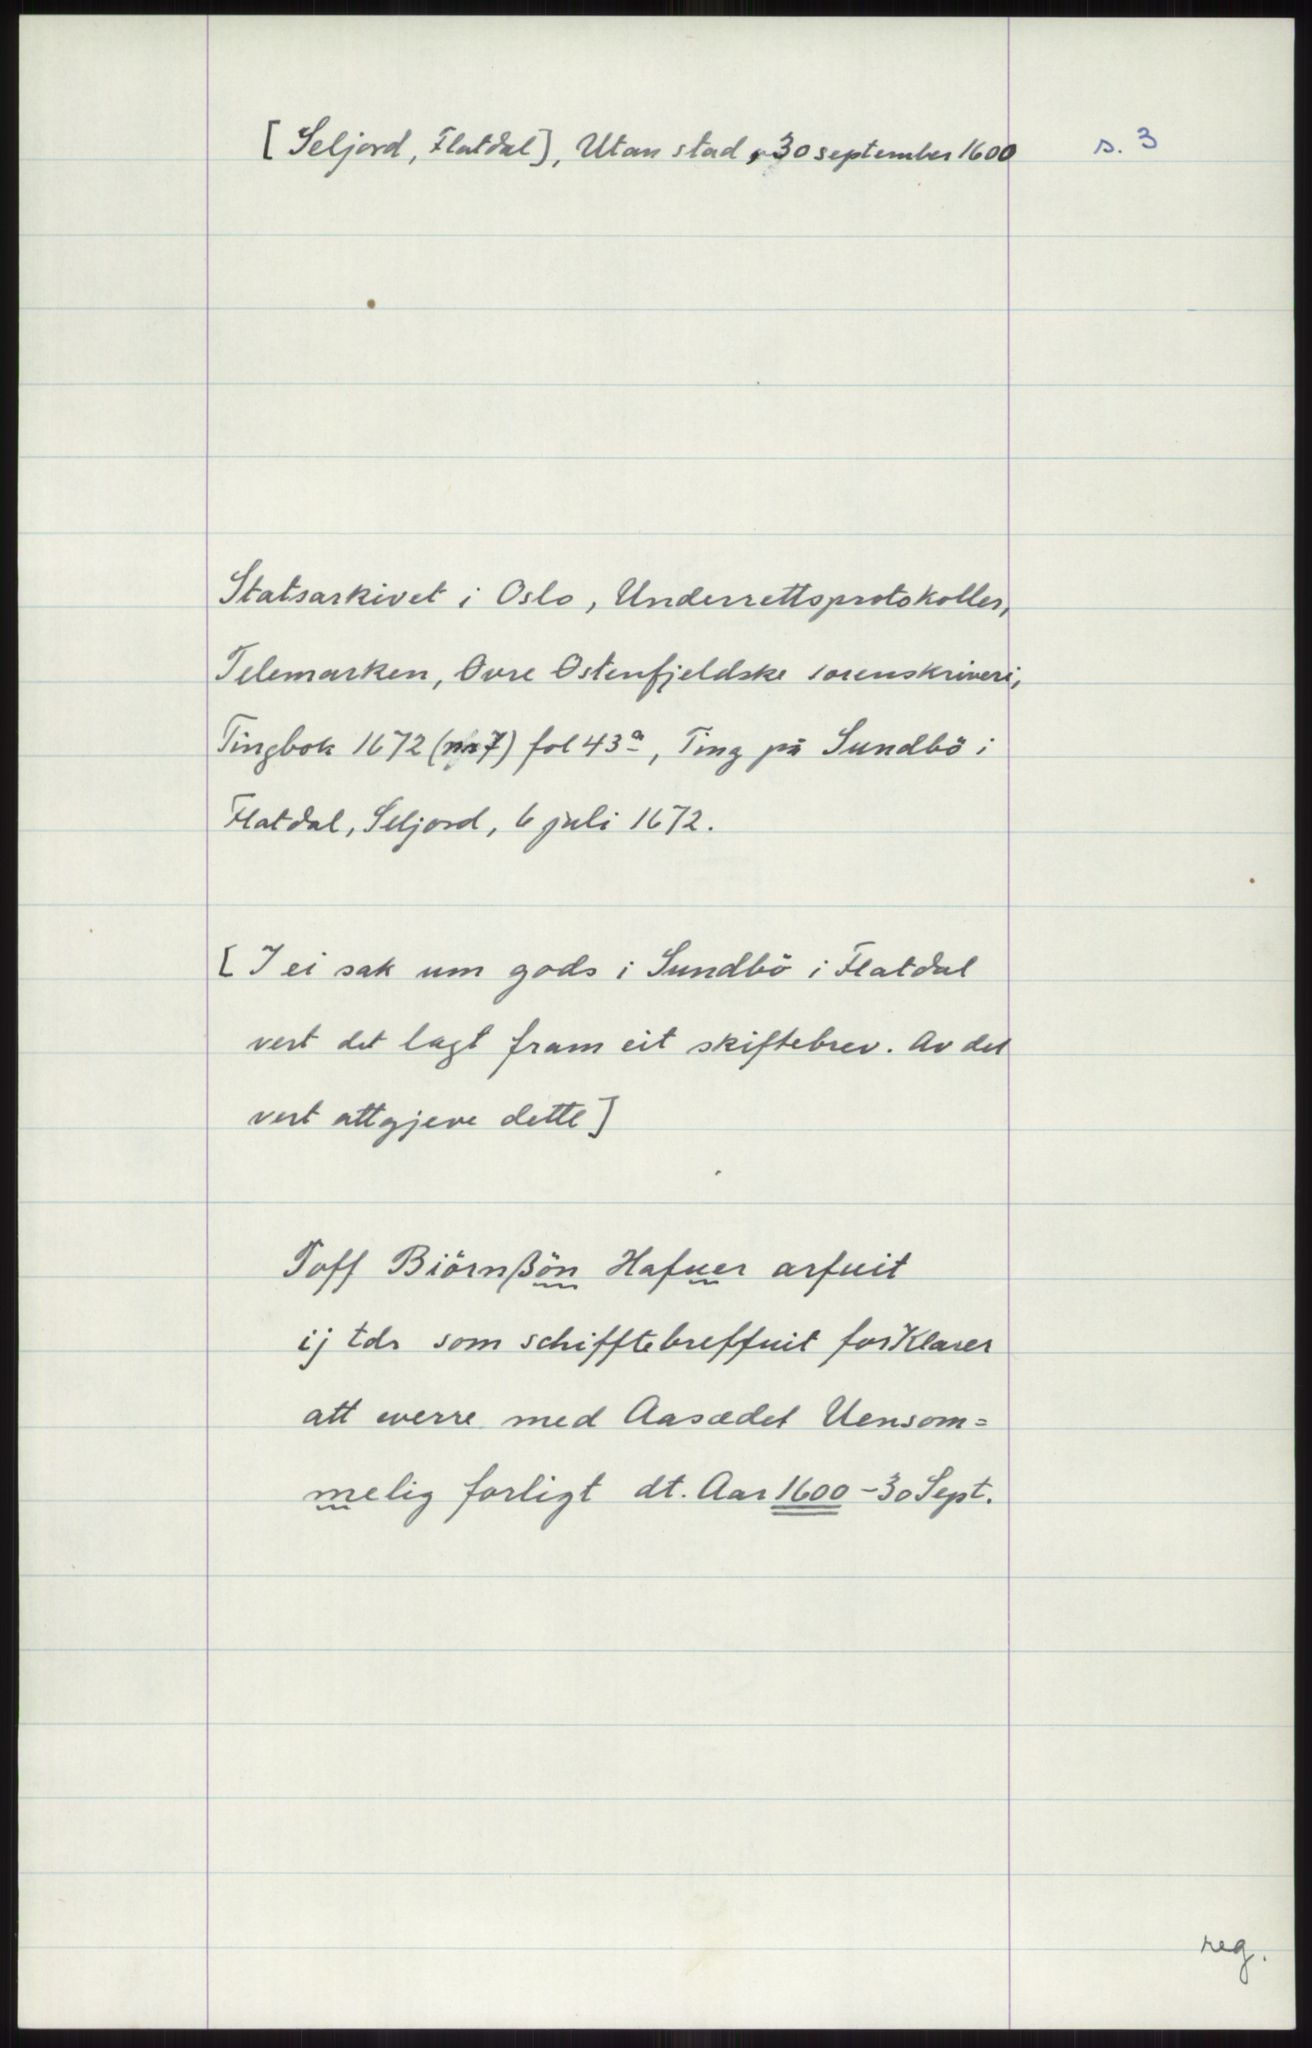 [Seljord, Flatdal], Utan stad, 30 september 1600
s. 3
Statsarkivet i Oslo, Underrettsprotokoller,
Telemarken, Øvre Østenfjeldske sorenskriveri,
Tingbok 1672 (nr 7) fol 43a, Ting på Sundbö i
Flatdal, Seljord, 6 juli 1672.
[I ei sak um gods i Sundbö i Flatdal
vert det lagt fram eit skiftebrev. Av det
vert attgjeve dette]
Toff Biörnßön Hafuer arfuit
ij tdr som schifftebreffuit forklarer
att werre med Aasædet Uensom=
melig forligt dt. Aar 1600 - 30 Sept.
reg.